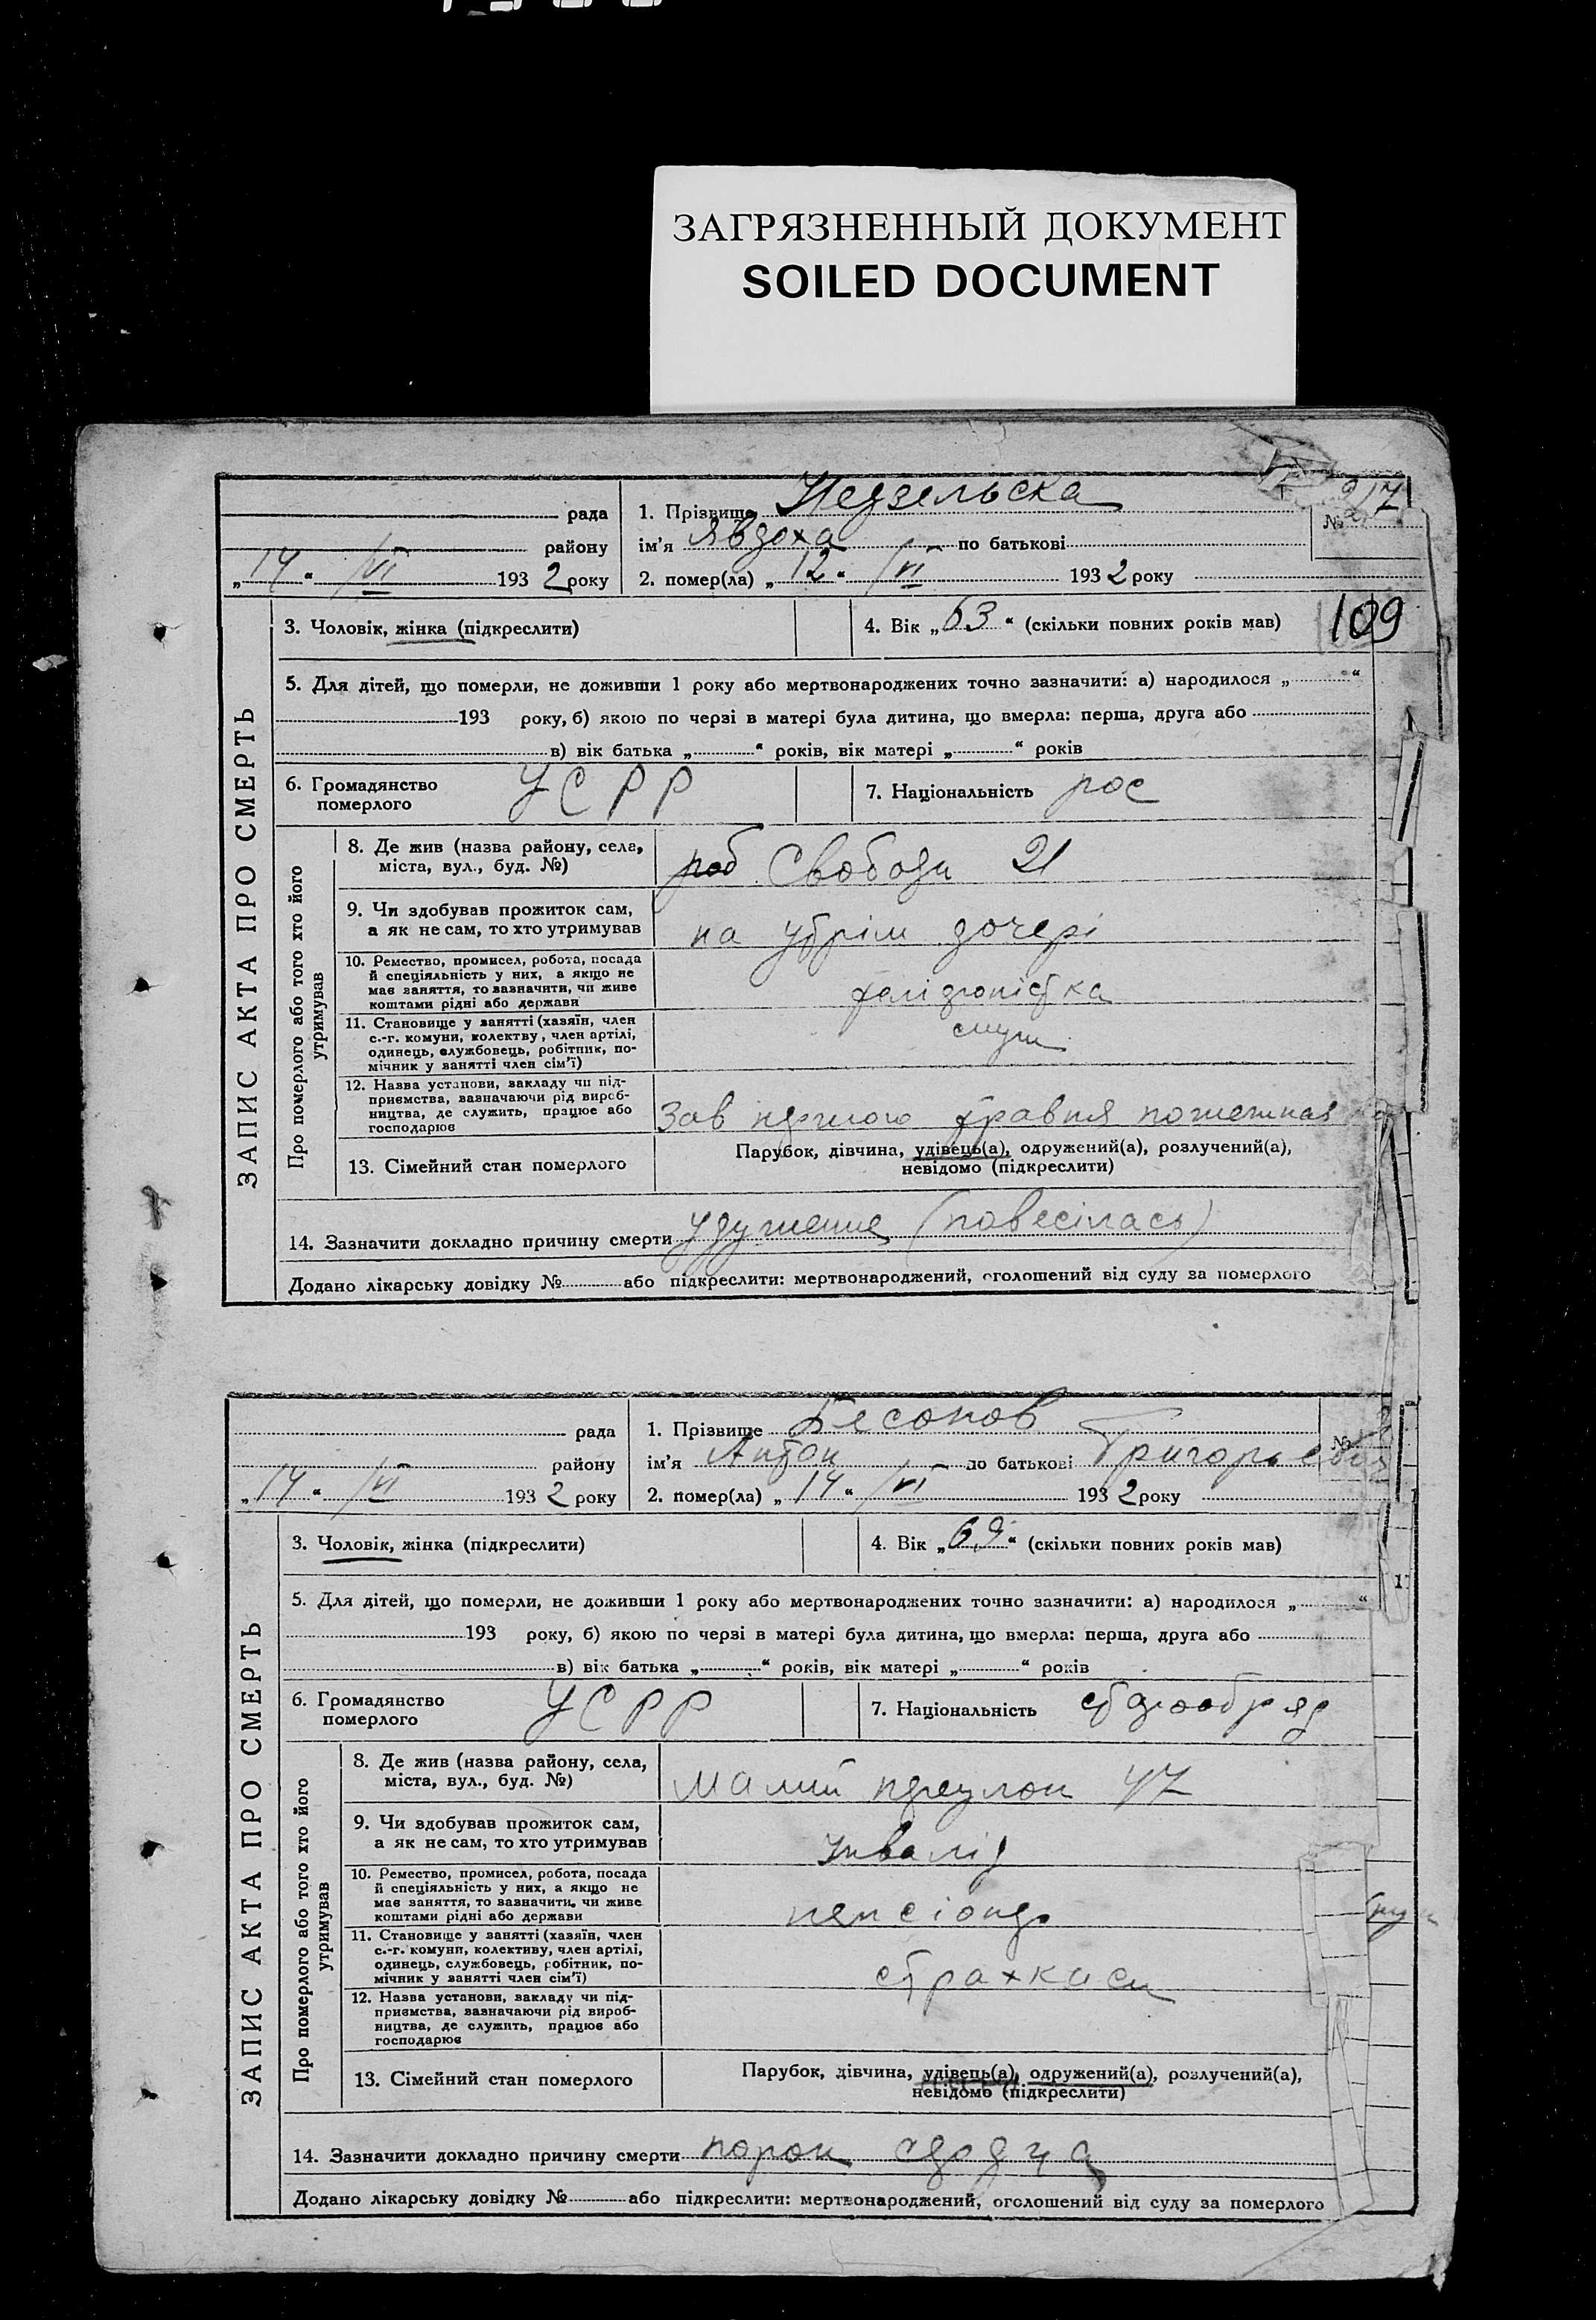 ЗАГРЯЗНЕННЫЙ ДОКУМЕНТ
SOILED DOCUMENT
ЗАПИС АКТА ПРО СМЕРТЬ
рада
району
„14“ /VI 1932 року
1. Прізвище Недзельска
ім'я Явдоха по батькові
2. помер(ла) „12“ /VI 1932 року
№ 217
109
3. Чоловік, жінка (підкреслити)
4. Вік „63“ (скільки повних років мав)
5. Для дітей, що померли, не доживши 1 року або мертвонароджених точно зазначити: а) народилося „ “
193 року, б) якою по черзі в матері була дитина, що вмерла: перша, друга або
в) вік батька „ “ років, вік матері „ “ років
6. Громадянство
померлого
УСРР
7. Національність рос
Про померлого або того хто його
утримував
8. Де жив (назва району, села,
міста, вул., буд. №)
роб Свободи 21
9. Чи здобував прожиток сам,
а як не сам, то хто утримував
на утрім дочері
10. Ремество, промисел, робота, посада
й спеціяльність у них, а якщо не
має заняття, то зазначити, чи живе
коштами рідні або держави
11. Становище у занятті (хазяїн, член
с.-г. комуни, колектву, член артілі,
одинець, службовець, робітник, по-
мічник у занятті член сім'ї)
служ
12. Назва установи, закладу чи під-
приємства, зазначаючи рід вироб-
ництва, де служить, працює або
господарює
Зав першого травня
13. Сімейний стан померлого
Парубок, дівчина, удівець(а), одружений(а), розлучений(а),
невідомо (підкреслити)
14. Зазначити докладно причину смерти удушение (повесілась)
Додано лікарську довідку № або підкреслити: мертвонароджений, оголошений від суду за померлого
ЗАПИС АКТА ПРО СМЕРТЬ
рада
району
„14“ /VI 1932 року
1. Прізвище Бесонов
ім'я Антон по батькові Григорьевич
2. помер(ла) „14“ /VI 1932 року
№
3. Чоловік, жінка (підкреслити)
4. Вік „69“ (скільки повних років мав)
5. Для дітей, що померли, не доживши 1 року або мертвонароджених точно зазначити: а) народилося „ “
193 року, б) якою по черзі в матері була дитина, що вмерла: перша, друга або
в) вік батька „ “ років, вік матері „ “ років
6. Громадянство
померлого
УСРР
7. Національність старообряд
Про померлого або того хто його
утримував
8. Де жив (назва району, села,
міста, вул., буд. №)
Малий переулок 47
9. Чи здобував прожиток сам,
а як не сам, то хто утримував
Инвалід
10. Ремество, промисел, робота, посада
й спеціяльність у них, а якщо не
має заняття, то зазначити, чи живе
коштами рідні або держави
пенсіонер
11. Становище у занятті (хазяїн, член
с.-г. комуни, колективу, член артілі,
одинець, службовець, робітник, по-
мічник у занятті член сім'ї)
страхкаси
12. Назва установи, закладу чи під-
приємства, зазначаючи рід вироб-
ництва, де служить, працює або
господарює
13. Сімейний стан померлого
Парубок, дівчина, удівець(а), одружений(а), розлучений(а),
невідомо (підкреслити)
14. Зазначити докладно причину смерти порок сердца
Додано лікарську довідку № або підкреслити: мертвонароджений, оголошений від суду за померлого